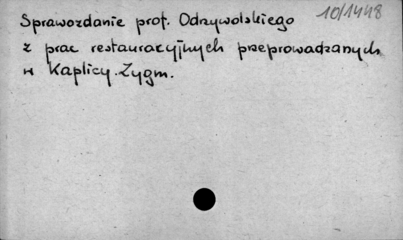 10/1448
Sprawozdanie prof. Odrzywolskiego
z prac restauracyjnych przeprowadzanych
w Kaplicy Zygm.